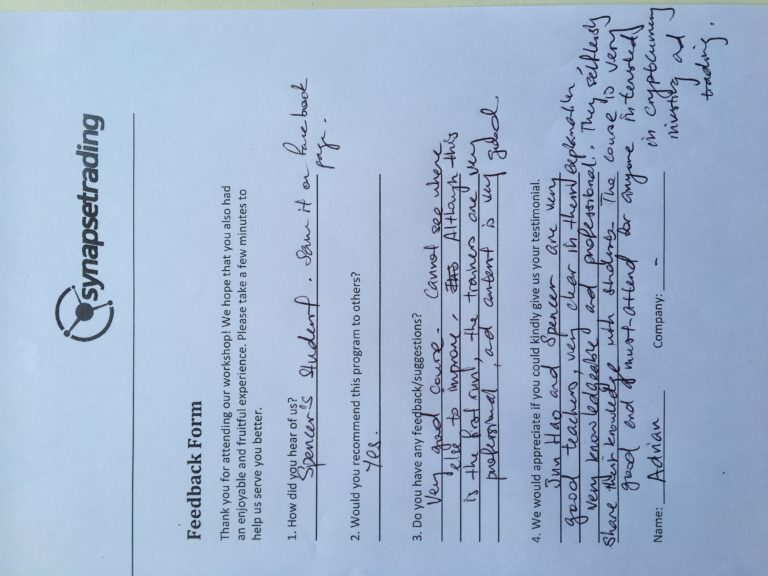 synapsetrading
Feedback Form
Thank you for attending our workshop! We hope that you also had
an enjoyable and fruitful experience. Please take a few minutes to
help us serve you better.
1. How did you hear of us?
Spencer's student. Saw it on Facebook
page.
2. Would you recommend this program to others?
Yes.
3. Do you have any feedback/suggestions?
Very good course. Cannot see where
else to improve. Although this
is the first run, the trainers are very
professional, and content is very good.
4. We would appreciate if you could kindly give us your testimonial.
Jun Hao and Spencer are very
good teachers, very clear in their explanation
very knowledgeable and professional. They selflessly
share their knowledge with students. The course is very
good and a must-attend for anyone interested
in cryptocurrency
investing and
trading.
Name: Adrian Company: -